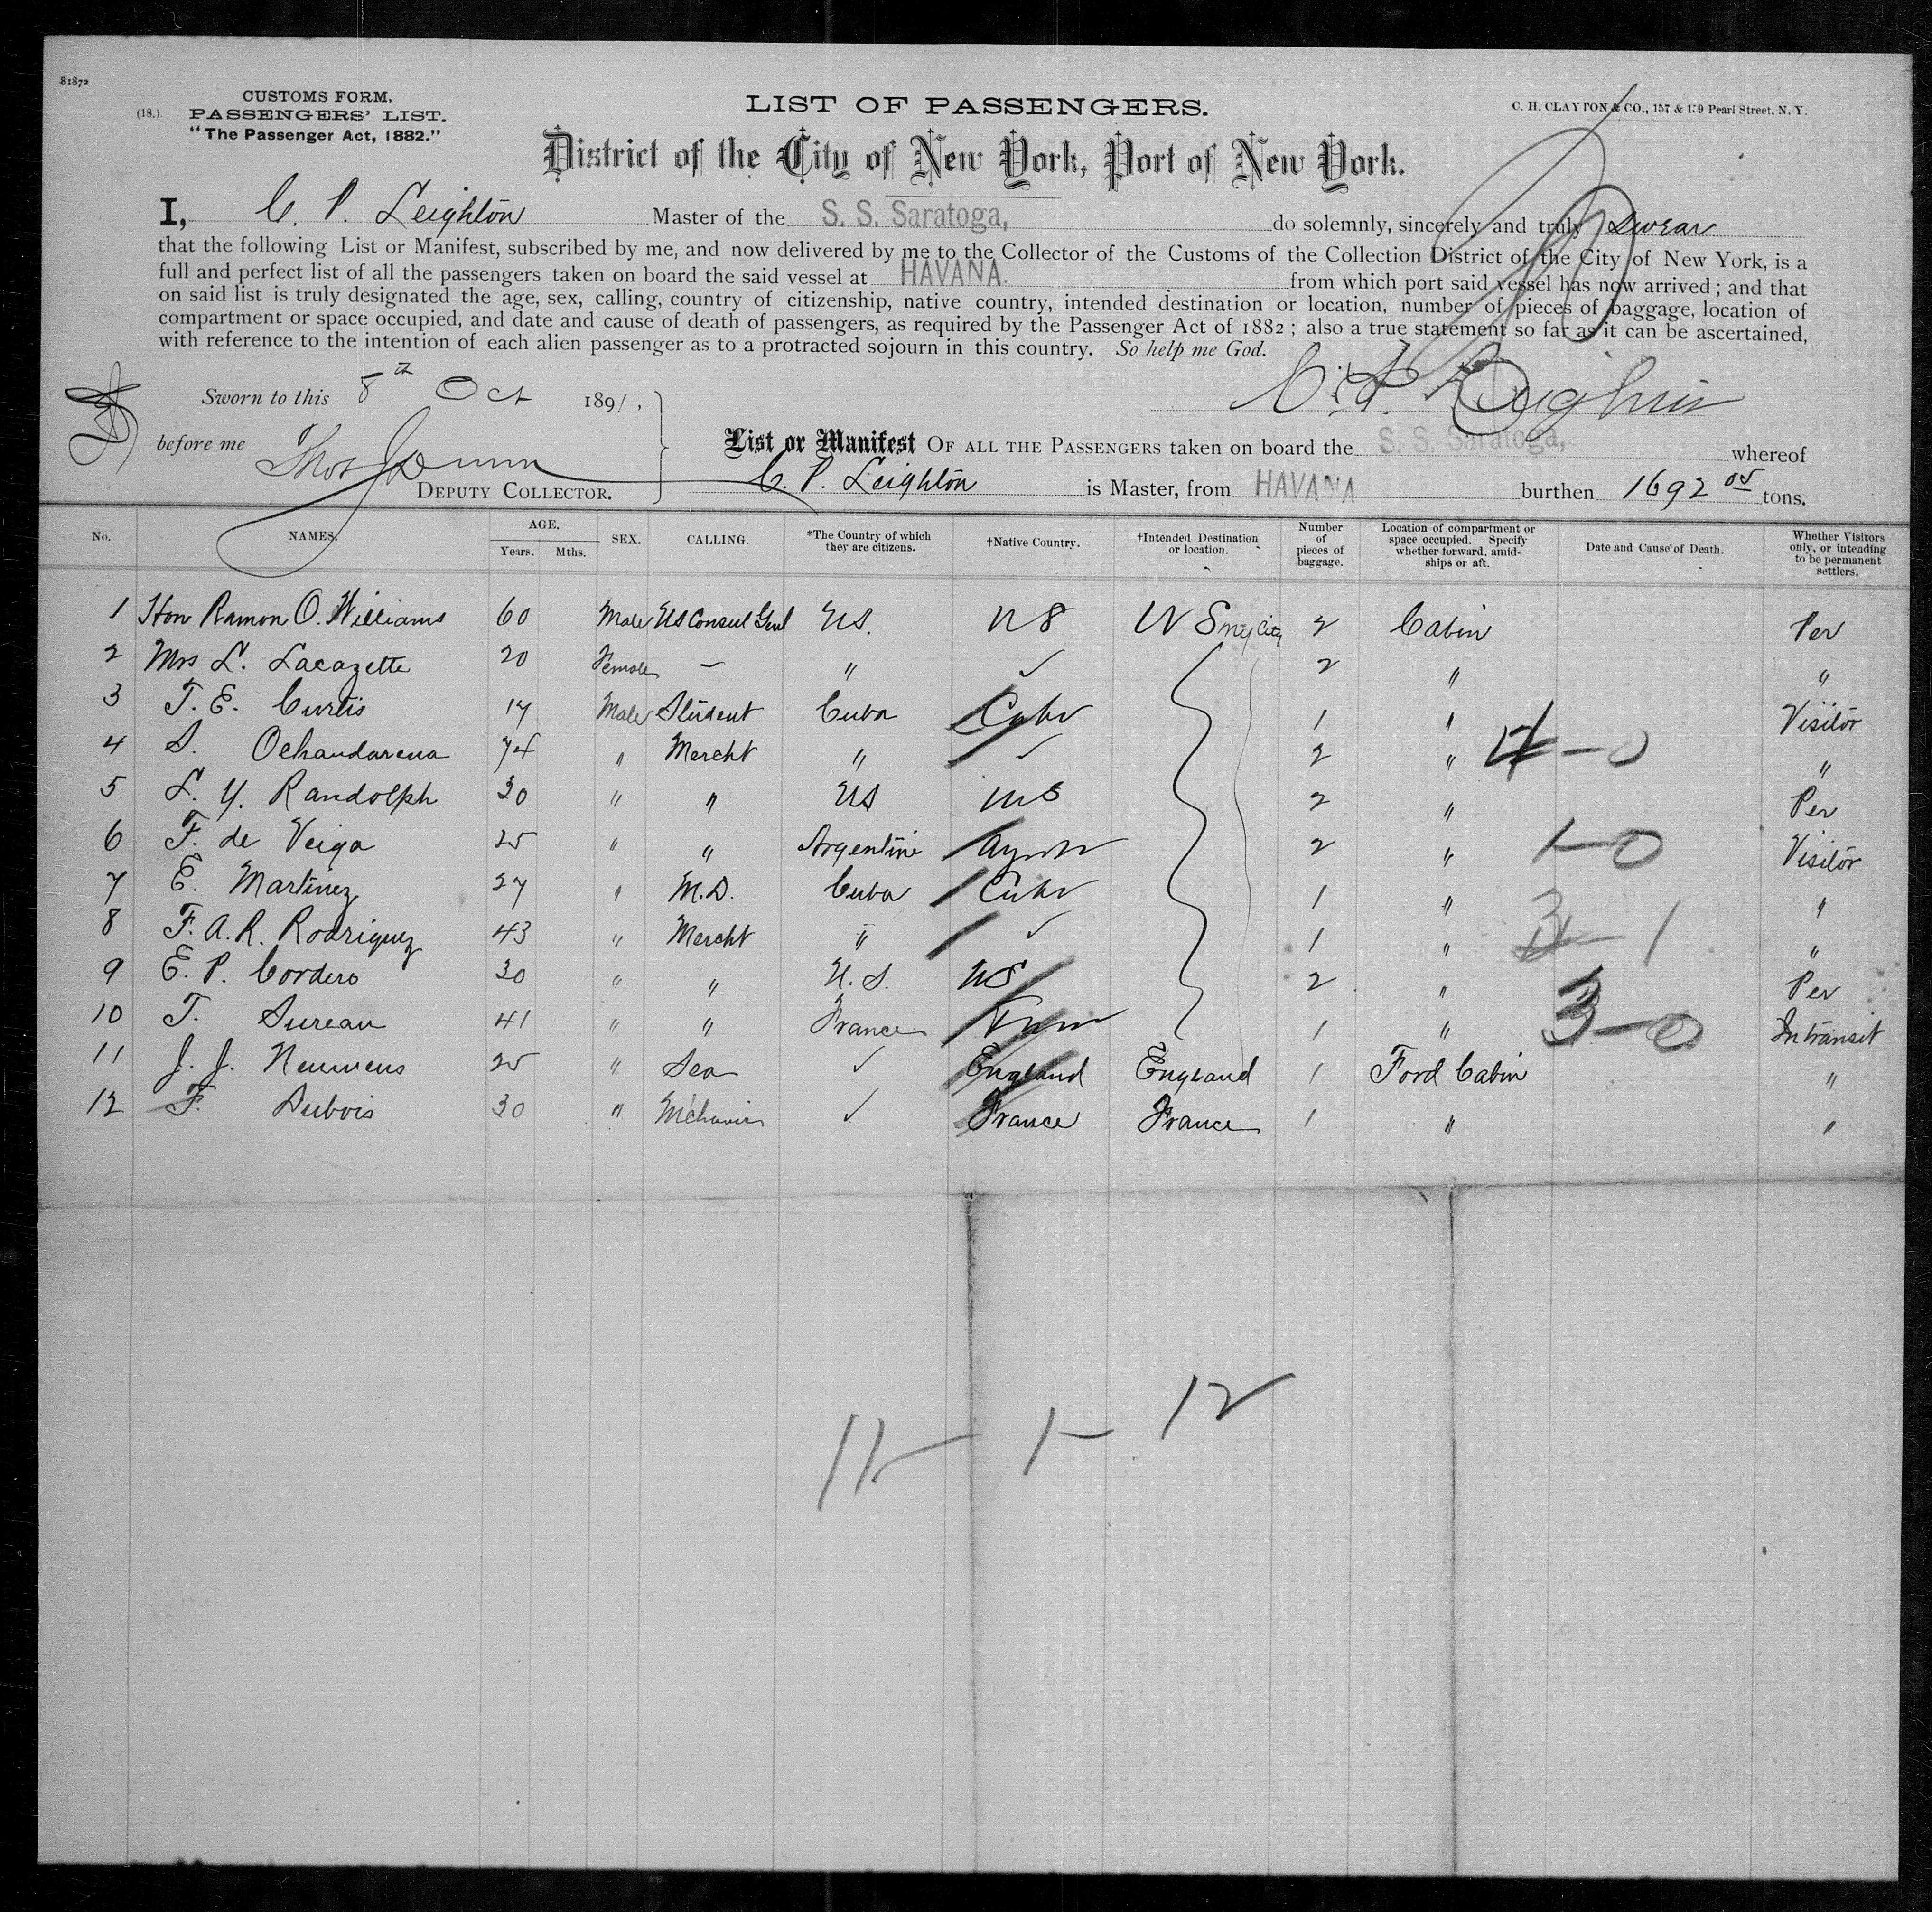 81872
CUSTOMS FORM.
(18.) PASSENGERS' LIST.
"The Passenger Act, 1882."
LIST OF PASSENGERS.
C. H. CLAYTON & CO., 157 & 159 Pearl Street, N. Y.
District of the City of New York, Port of New York.
I, C. P. Leighton Master of the S. S. Saratoga, do solemnly, sincerely and truly swear
that the following List or Manifest, subscribed by me, and now delivered by me to the Collector of the Customs of the Collection District of the City of New York, is a
full and perfect list of all the passengers taken on board the said vessel at HAVANA. from which port said vessel has now arrived; and that
on said list is truly designated the age, sex, calling, country of citizenship, native country, intended destination or location, number of pieces of baggage, location of
compartment or space occupied, and date and cause of death of passengers, as required by the Passenger Act of 1882; also a true statement so far as it can be ascertained,
with reference to the intention of each alien passenger as to a protracted sojourn in this country. So help me God.
Sworn to this 8th Oct 1891,
C. P. Leighton
before me Thos Dunn
DEPUTY COLLECTOR.
List or Manifest OF ALL THE PASSENGERS taken on board the S. S. Saratoga, whereof
C. P. Leighton is Master, from HAVANA burthen 1692 05 tons.
No. NAMES. AGE. Years. Mths. SEX. CALLING. *The Country of which they are citizens. †Native Country. †Intended Destination or location. Number of pieces of baggage. Location of compartment or space occupied. Specify whether forward, amidships or aft. Date and Cause of Death. Whether Visitors only, or intending to be permanent settlers.
1 Hon Ramon O. Williams 60 Male US Consul Genl US. US US NY City 2 Cabin Per
2 Mrs L. Lacazette 20 Female — " ✓ 2 " "
3 T. E. Curtis 17 Male Student Cuba Cuba 1 " Visitor
4 S. Ochandarena 74 " Mercht " ✓ 2 " 4—0 "
5 L. Y. Randolph 30 " " US US 2 " Per
6 F. de Veiga 25 " " Argentine 2 " 1—0 Visitor
7 E. Martinez 27 " M.D. Cuba Cuba 1 " "
8 F. A. R. Rodriguez 43 " Mercht " ✓ 1 " 3—1 "
9 E. P. Cordero 30 " " U.S. US 2 " Per
10 T. Sureau 41 " " France 1 " 3—0 In transit
11 J. J. Neuwens 25 " Sea ✓ England England 1 Ford Cabin "
12 F. Dubois 30 " Mchanic ✓ France France 1 " "
11— 1— 12